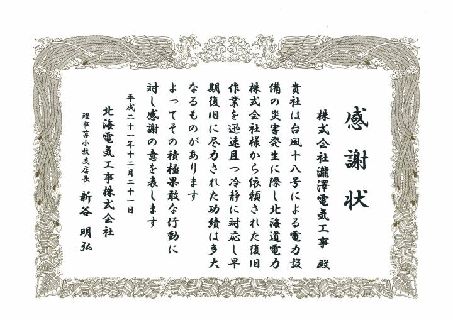 感謝状
株式会社瀧澤電気工事 殿
貴社は台風十八号による電力設
備の災害発生に際し北海道電力
株式会社様から依頼された復旧
作業を迅速且つ冷静に対応し早
期復旧に尽力された功績は多大
なるものがあります
よってその積極果敢な行動に
対し感謝の意を表します
平成二十一年十二月二十一日
北海電気工事株式会社
理事苫小牧支店長 新谷 明弘